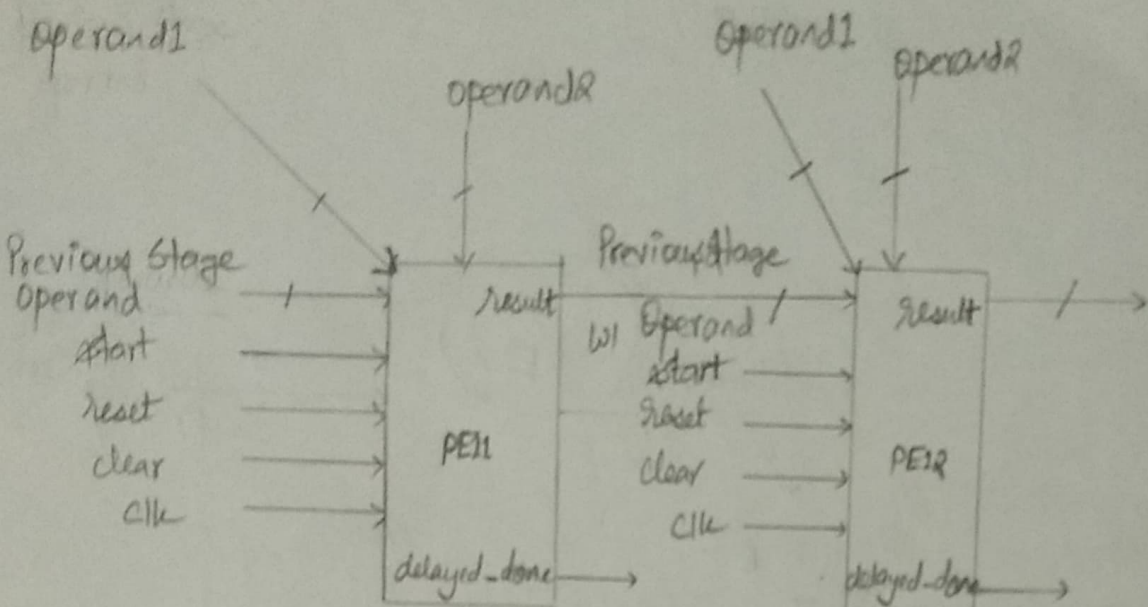 Operand1
operand2
Operand1
Operand2
Previous Stage
Operand
start
reset
clear
clk
result
PE11
delayed_done
Previous Stage
w1 Operand
start
reset
clear
clk
result
PE12
delayed_done